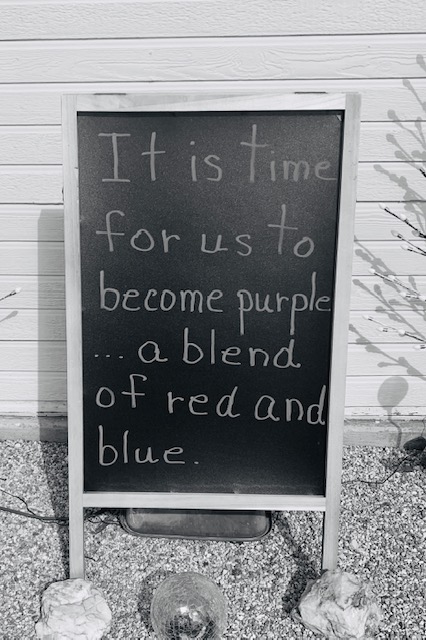 It is time
for us to
become purple
... a blend
of red and
blue.